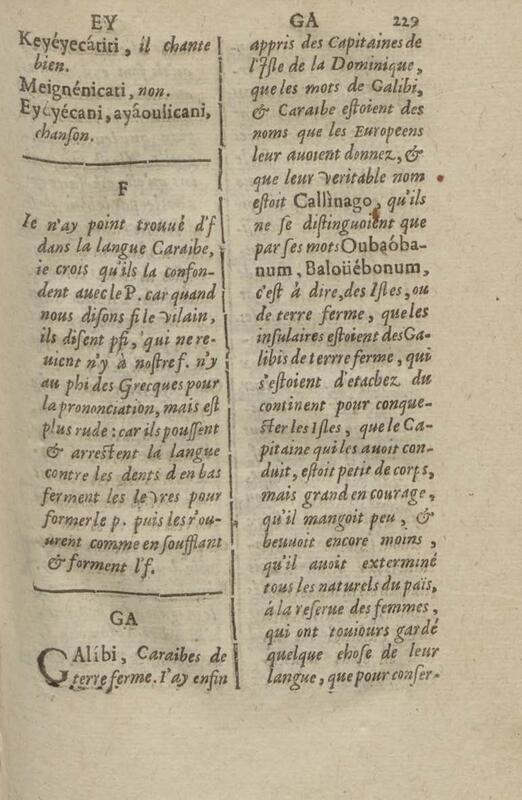 EY
Keyéyecátiti, il chante
bien.
Meignénicati, non.
Eyéyécani, ayáoulicani,
chanson.
F
Ie n'ay point trouué d'f
dans la langue Caraibe,
ie crois qu'ils la confon-
dent auec le P. car quand
nous disons fi le vilain,
ils disent pfi, qui ne re-
uient n'y à nostre f. n'y
au phi des Grecques pour
la prononciation, mais est
plus rude : car ils poussent
& arrestent la langue
contre les dents d'en bas
ferment les levres pour
former le p. puis les r'ou-
urent comme en soufflant
& forment l'f.
GA
GAlíbi, Caraibes de
terre ferme. I'ay enfin
GA 229
appris des Capitaines de
l'Isle de la Dominique,
que les mots de Galibi,
& Caraibe estoient des
noms que les Europeens
leur auoient donnez, &
que leur veritable nom
estoit Callìnago, qu'ils
ne se distinguoient que
par ses mots Oubaóba-
num, Baloüébonum,
c'est à dire, des Isles, ou
de terre ferme, que les
insulaires estoient des Ga-
libis de terre ferme, qui
s'estoient d'etachez du
continent pour conque-
ster les Isles, que le Ca-
pitaine qui les auoit con-
duit, estoit petit de corps,
mais grand en courage,
qu'il mangoit peu, &
beuuoit encore moins,
qu'il auoit exterminé
tous les naturels du païs,
à la reserue des femmes,
qui ont touiours gardé
quelque chose de leur
langue, que pour conser-